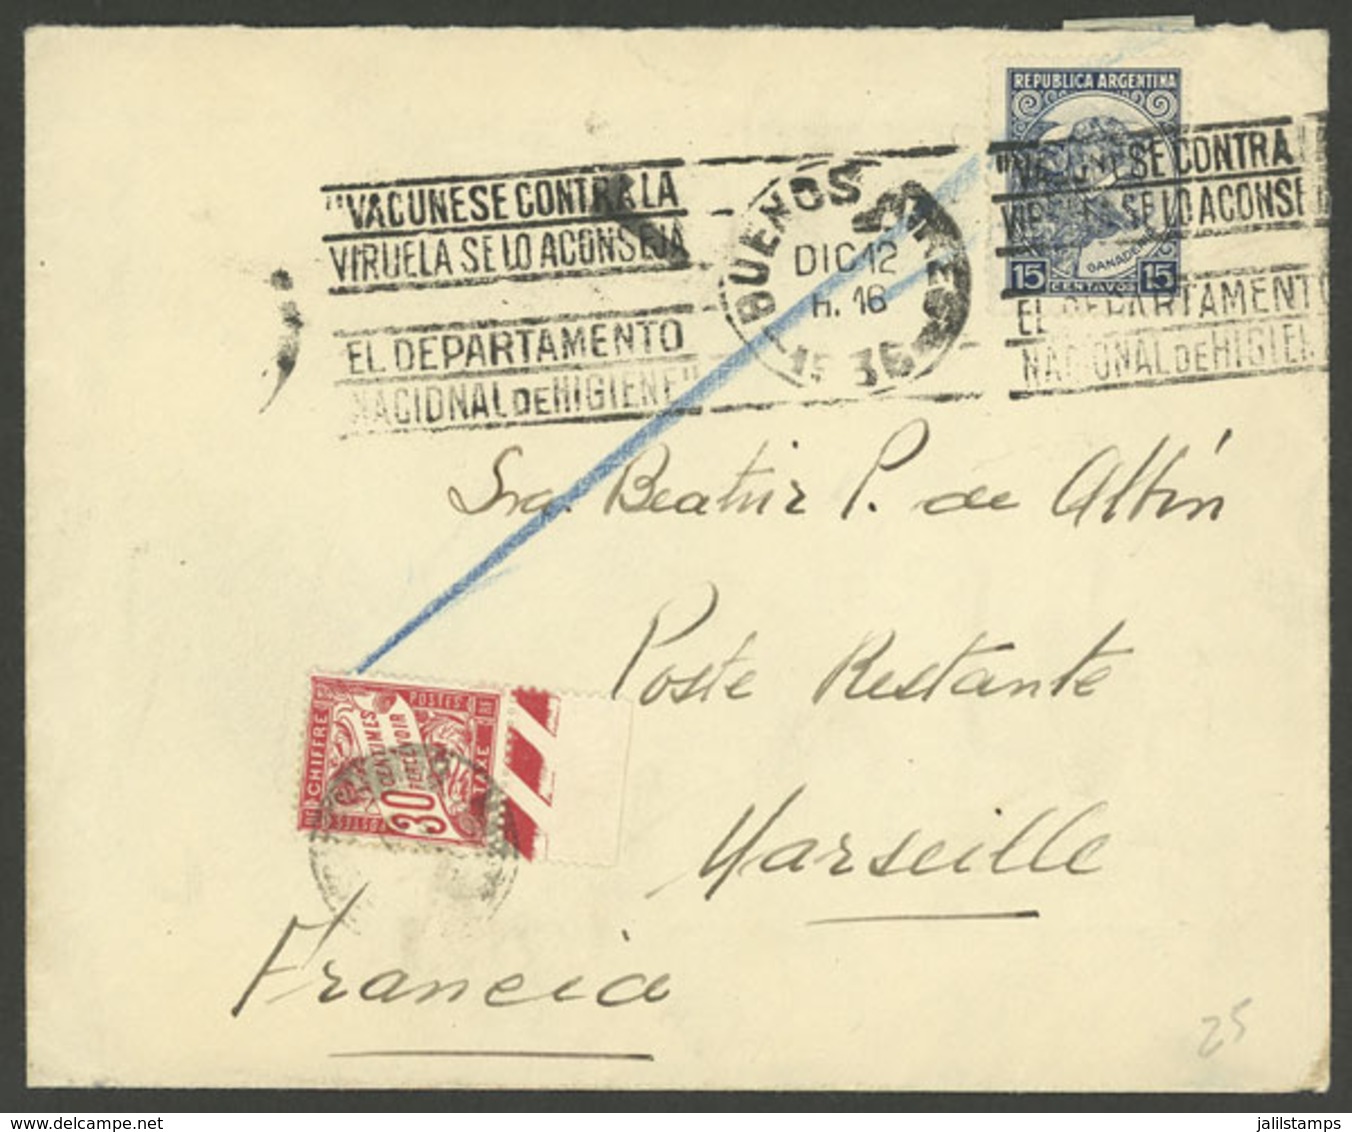 REPUBLICA ARGENTINA
GANADERIA
15 CENTAVOS 15
"VACUNESE CONTRA LA
VIRUELA SE LO ACONSEJA
EL DEPARTAMENTO
NACIONAL DE HIGIENE"
BUENOS AIRES
DIC 12
H. 16
1936
"VACUNESE CONTRA
VIRUELA SE LO ACONSE
EL DEPARTAMENTO
NACIONAL DE HIGIEN
Sra. Beatriz P. de Albin
Poste Restante
Marseille
Francia
CHIFFRE
POSTES
TAXE
30
CENTIMES
PERCEVOIR
POSTES
25
jalilstamps